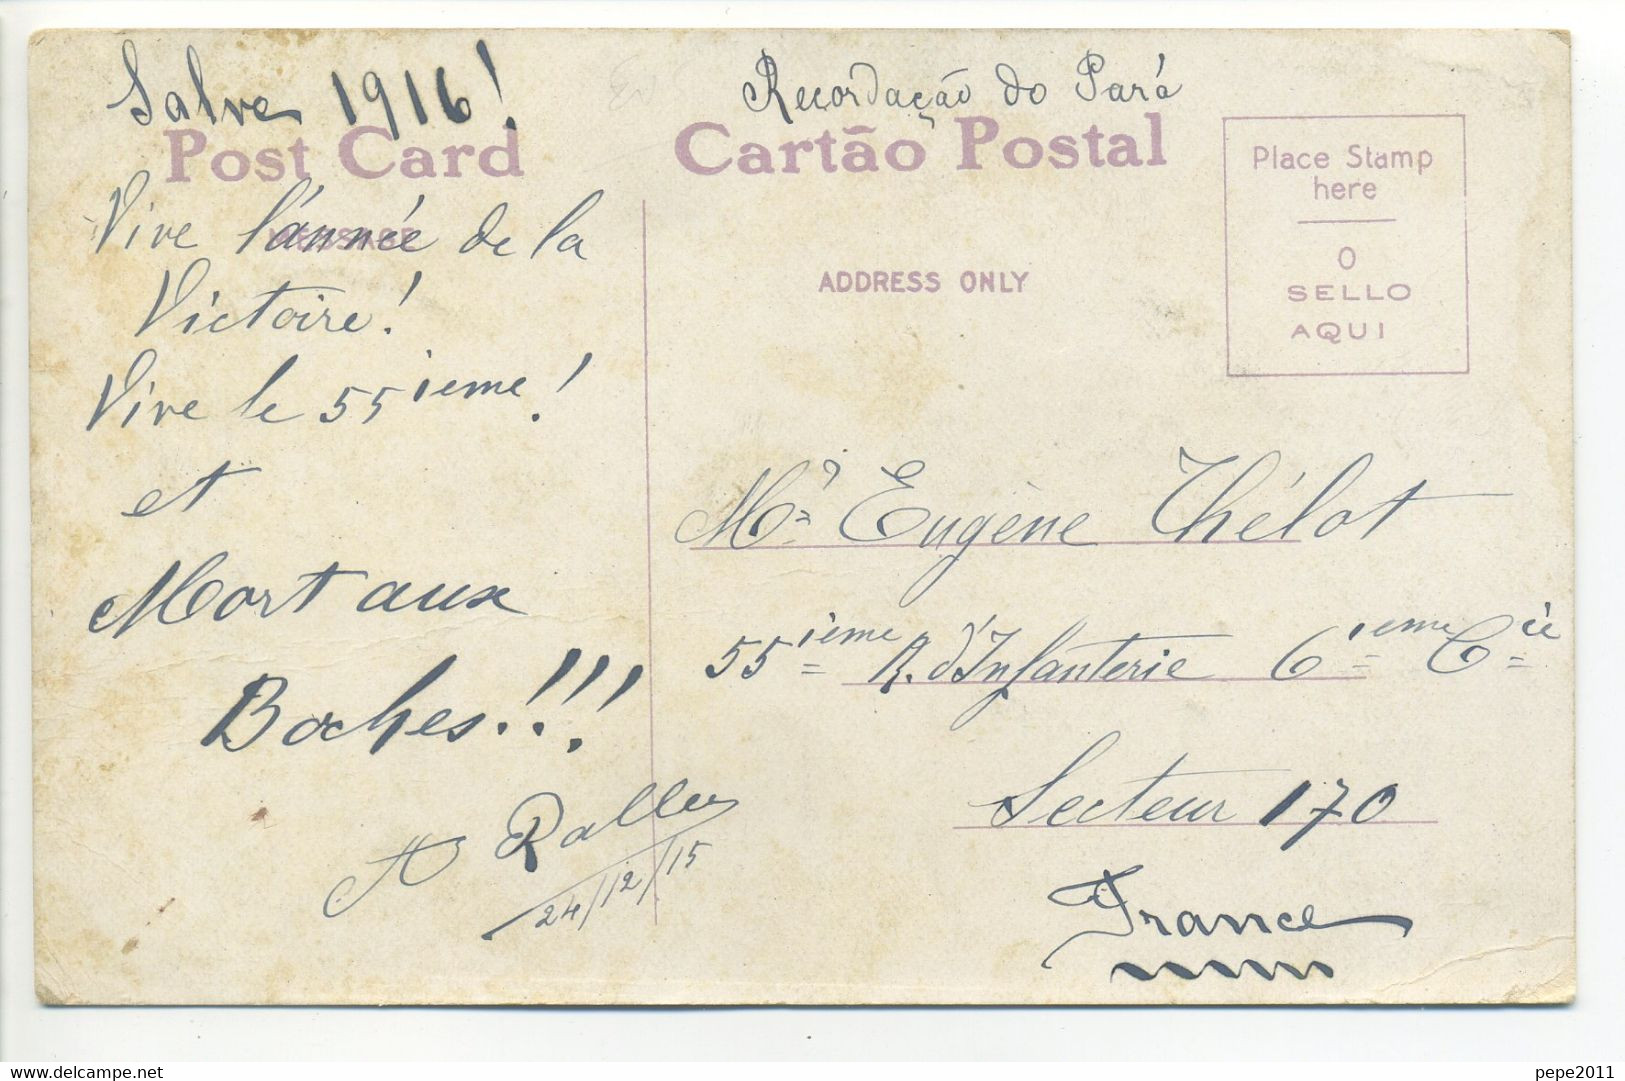 Salve 1916!
Recordação do Pará
Post Card
Cartão Postal
Place Stamp
here
O
SELLO
AQUI
MESSAGE
ADDRESS ONLY
Vive l'année de la
Victoire!
Vive le 55ieme!
et
Mort aux
Boches!!!
24/12/15
Mr Eugène Thélot
55ième R. d'Infanterie 6ieme Cie
Secteur 170
France
delcampe.net
pepe2011